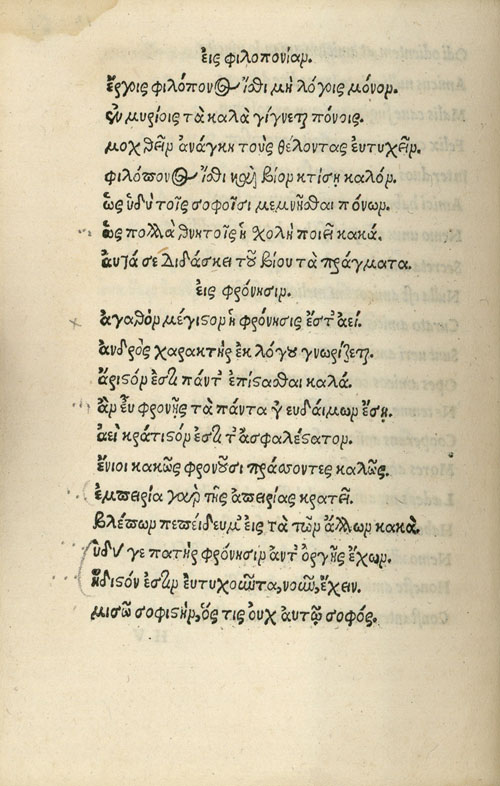 εἰς φιλοπονίαν.
ἔργοις φιλόπονος ἴσθι μὴ λόγοις μόνον.
σὺν μυρίοις τὰ καλὰ γίγνεται πόνοις.
μοχθεῖν ἀνάγκη τοὺς θέλοντας ἐυτυχεῖν.
φιλόπονος ἴσθι καὶ βίον κτίσῃ καλόν.
ὡς ὑδὺ τοῖς σοφοῖσι μεμνῆσθαι πόνων.
ὡς πολλὰ θνητοῖς ἡ χολὴ ποιεῖ κακά.
ἀυτά σε διδάσκει τοῦ βίου τὰ πράγματα.
εἰς φρόνησιν.
ἀγαθὸν μέγιστον ἡ φρόνησις ἔστ᾽ ἀεί.
ἀνδρὸς χαρακτὴρ ἐκ λόγου γνωρίζεται.
ἄριστόν ἐστι πάντ᾽ ἐπίστασθαι καλά.
ἂν ἐυ φρονῇς τὰ πάντα γ᾽ ευδάιμων ἔσῃ.
ἀεὶ κράτιστόν ἐστι τ᾽ ἀσφαλέστατον.
ἔνιοι κακῶς φρονοῦσι πράσσοντες καλῶς.
ἐμπειρία γὰρ τῆς ἀπειρίας κρατεῖ.
βλέπων πεπείδευμ᾽ εἰς τὰ τῶν ἄλλων κακά.
ὑδύ γε πατὴρ φρόνησιν ἀντ᾽ ὀργῆς ἔχων.
ἥδιστόν ἐστιν ἐυτυχοῦντα, νοῦν, ἔχειν.
μισῶ σοφιστὴν, ὅς τις ὀυχ αὑτῷ σοφός.